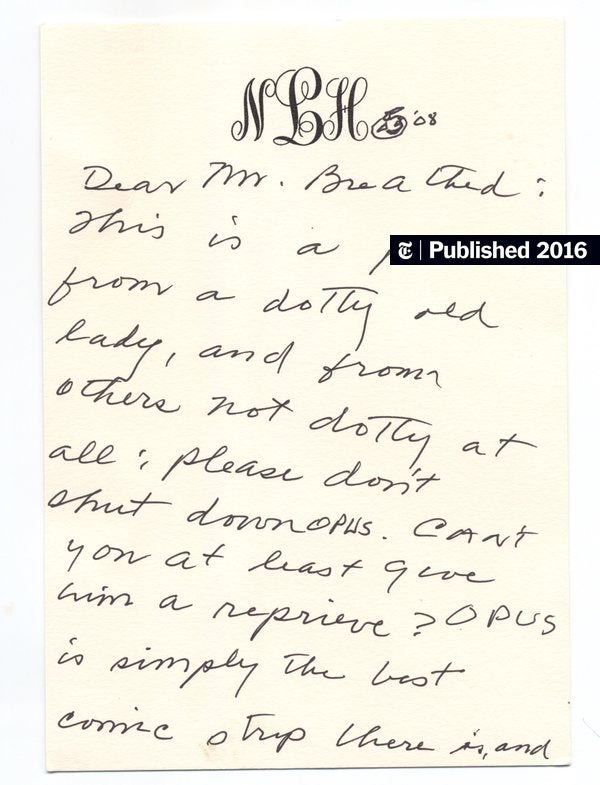 NLH
'08
Dear Mr. Breathed:
This is a
Published 2016
from a dotty old
lady, and from
others not dotty at
all: please don't
shut down OPUS. CAN'T
you at least give
him a reprieve? OPUS
is simply the best
comic strip there is, and